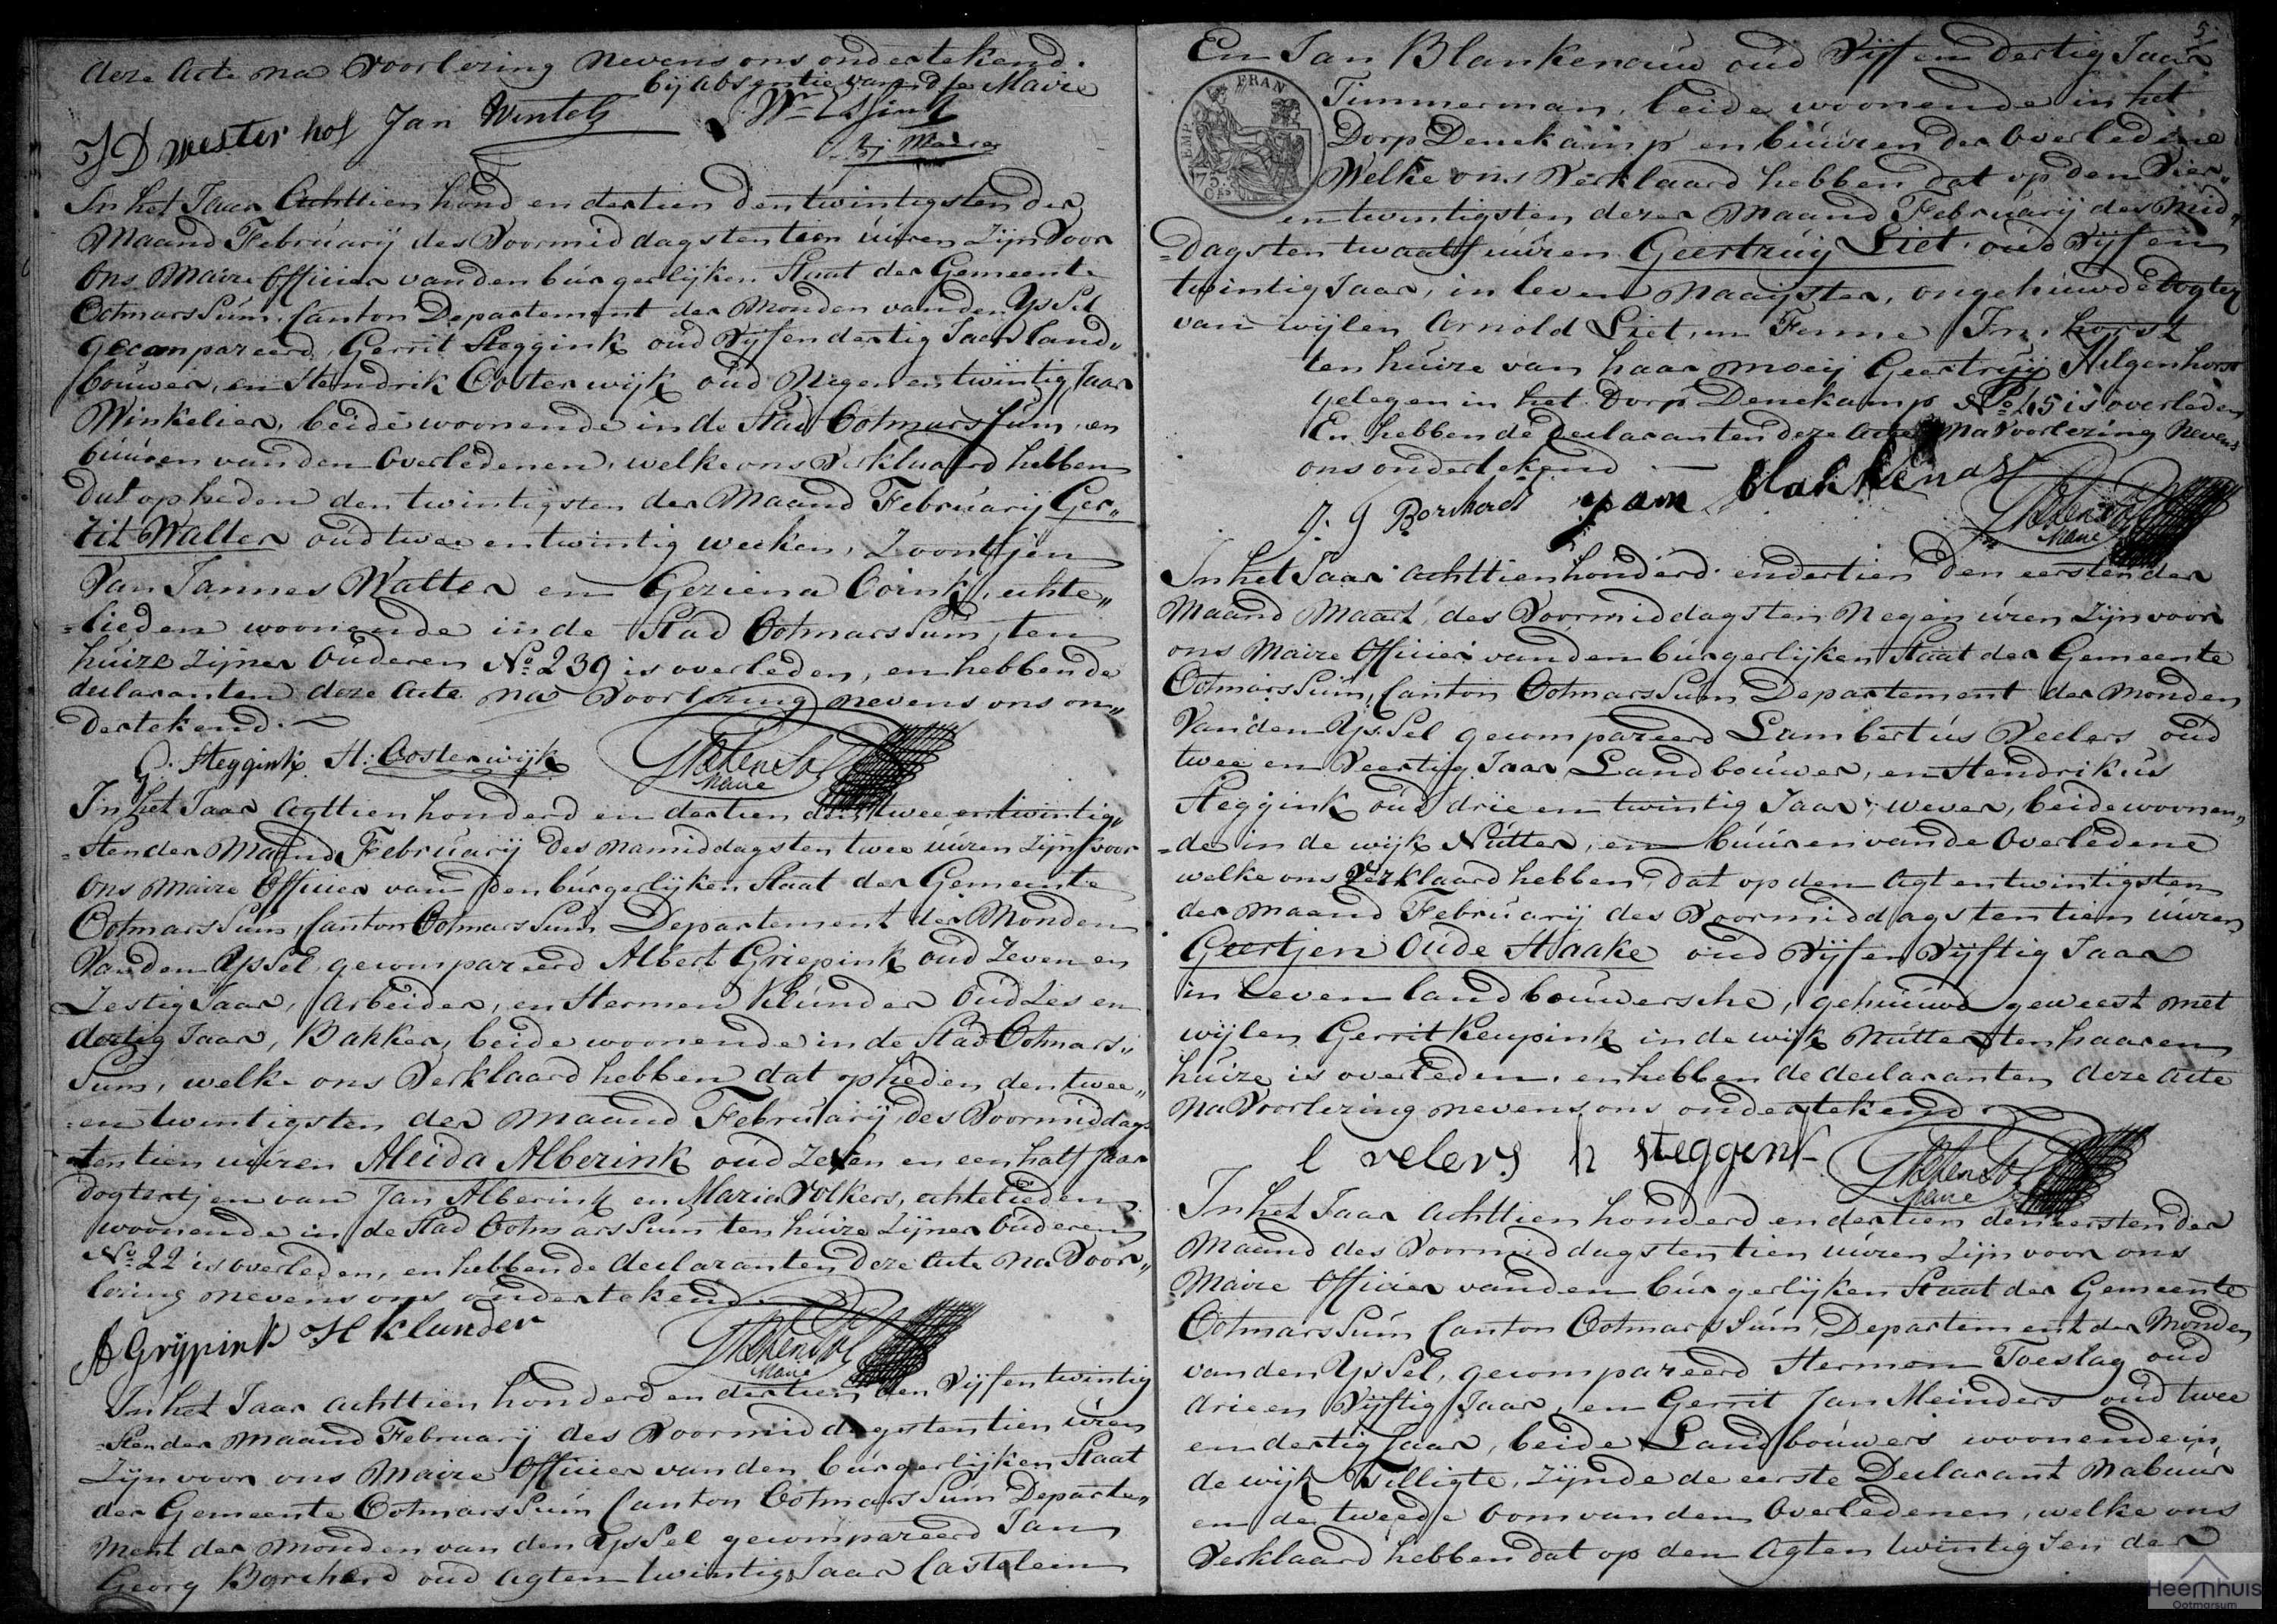 deze Acte na Voorlezing nevens ons ondertekend.
bij absentie van d'he Maire
J D wester hof Jan Wentels
bij Maire
In het Jaar Achttienhond en dertien den twintigsten der
Maand Februarij des Voormiddags ten tien uuren Zijn Voor
Ons Maire Officier van den burgerlijken Staat der Gemeente
OotmarsSum, Canton Departement der Monden van den YsSel
gecompareerd, Gerrit Steggink oud Vijf en dertig Jaar land„
bouwer, en Hendrik Oosterwijk oud Negen en twintig Jaar
Winkelier, beide woonende in de Stad OotmarsSum, en
buuren van den Overledenen, welke ons Verklaard hebben
dat op heden den twintigsten der Maand Februarij Ger„
rit Walter oud twee en twintig weeken, Zoontjen
Van Jannes Walter en Geziena Ooink, echte„
=lieden woonende in de Stad OotmarsSum, ten
huize Zijner Ouderen No 239 is overleden, en hebben de
declaranten deze Acte na Voorlezing nevens ons on„
dertekend.
G. Steggink H: Oosterwijk
Maire
In het Jaar Agttienhonderd en dertien den twee en twintig„
=sten der Maand Februarij des namiddags ten twee uuren Zijn voor
Ons Maire Officier van den burgerlijken Staat der Gemeente
OotmarsSum, Canton OotmarsSum Departement der Monden
Van den YsSel, gecompareerd Albert Griepink oud Zeven en
Zestig Jaar, Arbeider, en Hermen Klunder Oud Zes en
dertig Jaar, Bakker, beide woonende in de Stad Ootmars„
Sum, welke ons Verklaard hebben dat op heden, den twee„
=en twintigsten der Maand Februarij, des Voormiddags
ten tien uuren Aleida Alberink oud Zeven en een half Jaar
dogtertjen van Jan Alberink en Maria Volkers, echtelieden
woonende in de Stad OotmarsSum ten huize Zijner Ouderen
No 22 is overleden, en hebben de declaranten deze Acte na Voor„
lezing nevens ons ondertekend.
A Grijpink H Klunder
Maire
In het Jaar Achttien honderd en dertien, den Vijf en twintig
=sten der Maand Februarij des Voormiddags ten tien uren
Zijn voor ons Maire Officier van den burgerlijken Staat
der Gemeente OotmarsSum Canton OotmarsSum Departe„
ment der Monden van den YsSel gecompareerd Jan
Georg Borcherd oud Agt en twintig Jaar Castelein
5.
En Jan Blankenauw oud Vijf en dertig Jaar
EMP. FRAN
75.
CES
Timmerman, beide woonende in het
Dorp Denekamp en buuren der Overledene
Welke ons Verklaard hebben dat op den Vier„
en twintigsten dezer Maand Februarij des Mid„
=dags ten twaalf uuren Geertruij Liet. oud Vijf en
twintig Jaar, in leven Naaijster, ongehuuwde dogter
van wijlen Arnold Liet, en Fenne Im. horst
ten huize van haar moeij Geertruij Hilgenhorst
gelegen in het Dorp Denekamp No 45 is overleden
En hebben de declaranten deze Acte Na Voorlezing Nevens
ons ondertekend.
J. G Borcherdt yan blankenau
Maire
In het Jaar Achttienhonderd en dertien den eersten der
Maand Maart, des Voormiddags ten Negen uren Zijn voor
ons Maire Officier van den burgerlijken Staat der Gemeente
OotmarsSum, Canton OotmarsSum Departement der Monden
Van den YsSel gecompareerd Lambertus Veelers oud
twee en Veertig Jaar, Landbouwer, en Hendrikus
Steggink oud drie en twintig Jaar, wever, beide woonen„
=de in de wijk Nutter, en buuren van de Overledene
welke ons Verklaard hebben, dat op den Agt en twintigsten
der Maand Februarij des Voormiddags ten tien uuren
Geertjen Oude Haake oud Vijf en Vijftig Jaar
in leven landbouwersche, gehuuwd geweest met
wijlen Gerrit Keupink in de wijk Nutter ten haaren
huize is overleden. en hebben de declaranten deze Acte
Na Voorlezing nevens ons ondertekend.
l velers h steggenk
Maire
In het Jaar Achttien honderd en dertien den eersten der
Maand des Voormiddags ten tien uuren Zijn voor ons
Maire Officier van den burgerlijken Staat der Gemeente
OotmarsSum Canton OotmarsSum, Departement der Monden
van den YsSel, gecompareerd Hermen Toeslag oud
drie en Vijftig Jaar, en Gerrit Jan Meinders oud twee
en dertig Jaar, beide Landbouwers woonende in
de wijk Tilligte, Zijnde de eerste Declarant Nabuur
en de tweede Oom van den Overledenen, welke ons
Verklaard hebben dat op den Agt en twintigsten der
Heemhuis
Ootmarsum